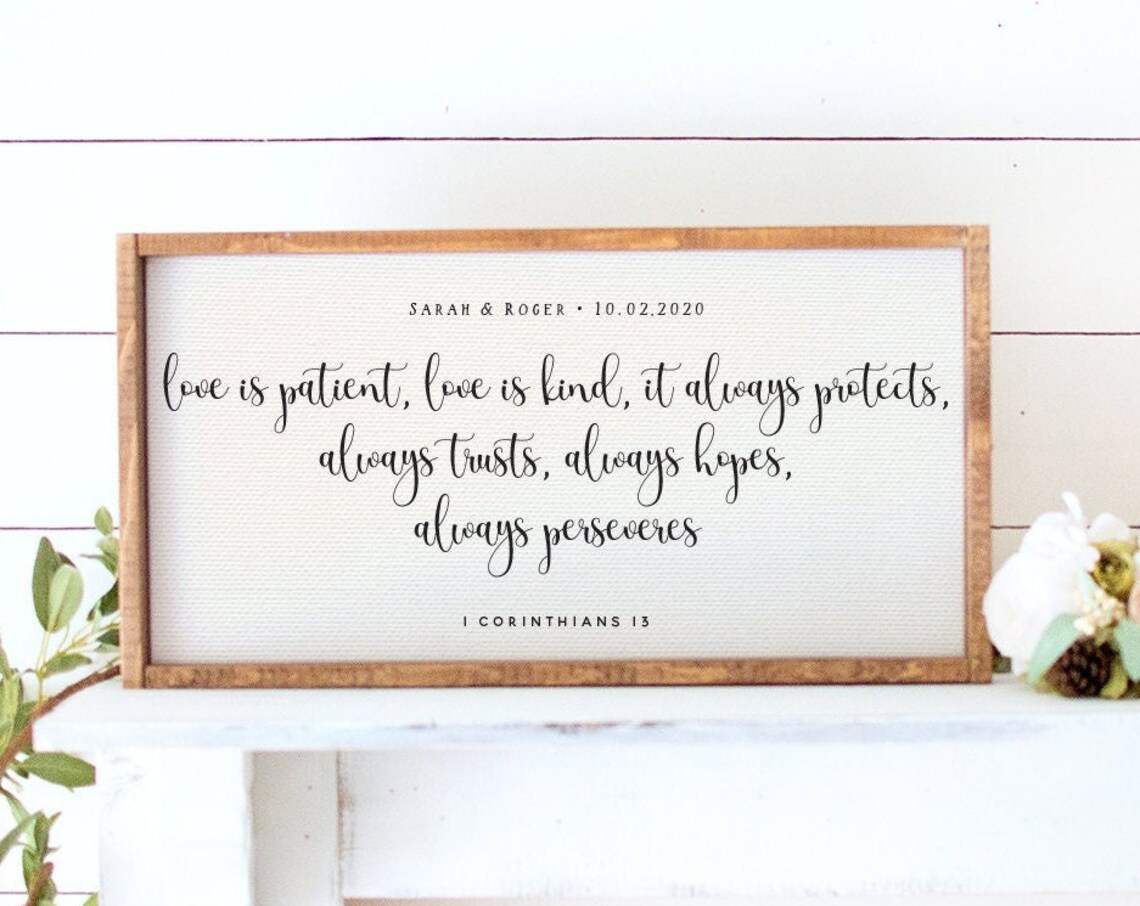 Sarah & Roger • 10.02.2020
love is patient, love is kind, it always protects,
always trusts, always hopes,
always perseveres
1 CORINTHIANS 13